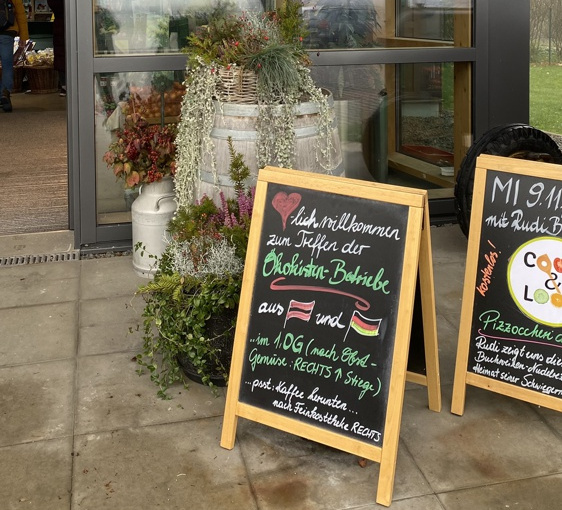 lich willkommen
zum Treffen der
Ökokisten-Betriebe
aus und
...im 1.OG (nach Obst-
Gemüse: RECHTS ↑ Stiege)
...psst: Kaffee herunten...
nach Feinkosttheke RECHTS
MI 9.11
mit Rudi
kostenlos!
CO
&
LOO
Pizzoccheri
Rudi zeigt uns die
Buchweizen-Nudeln
Heimat seiner Schwieger